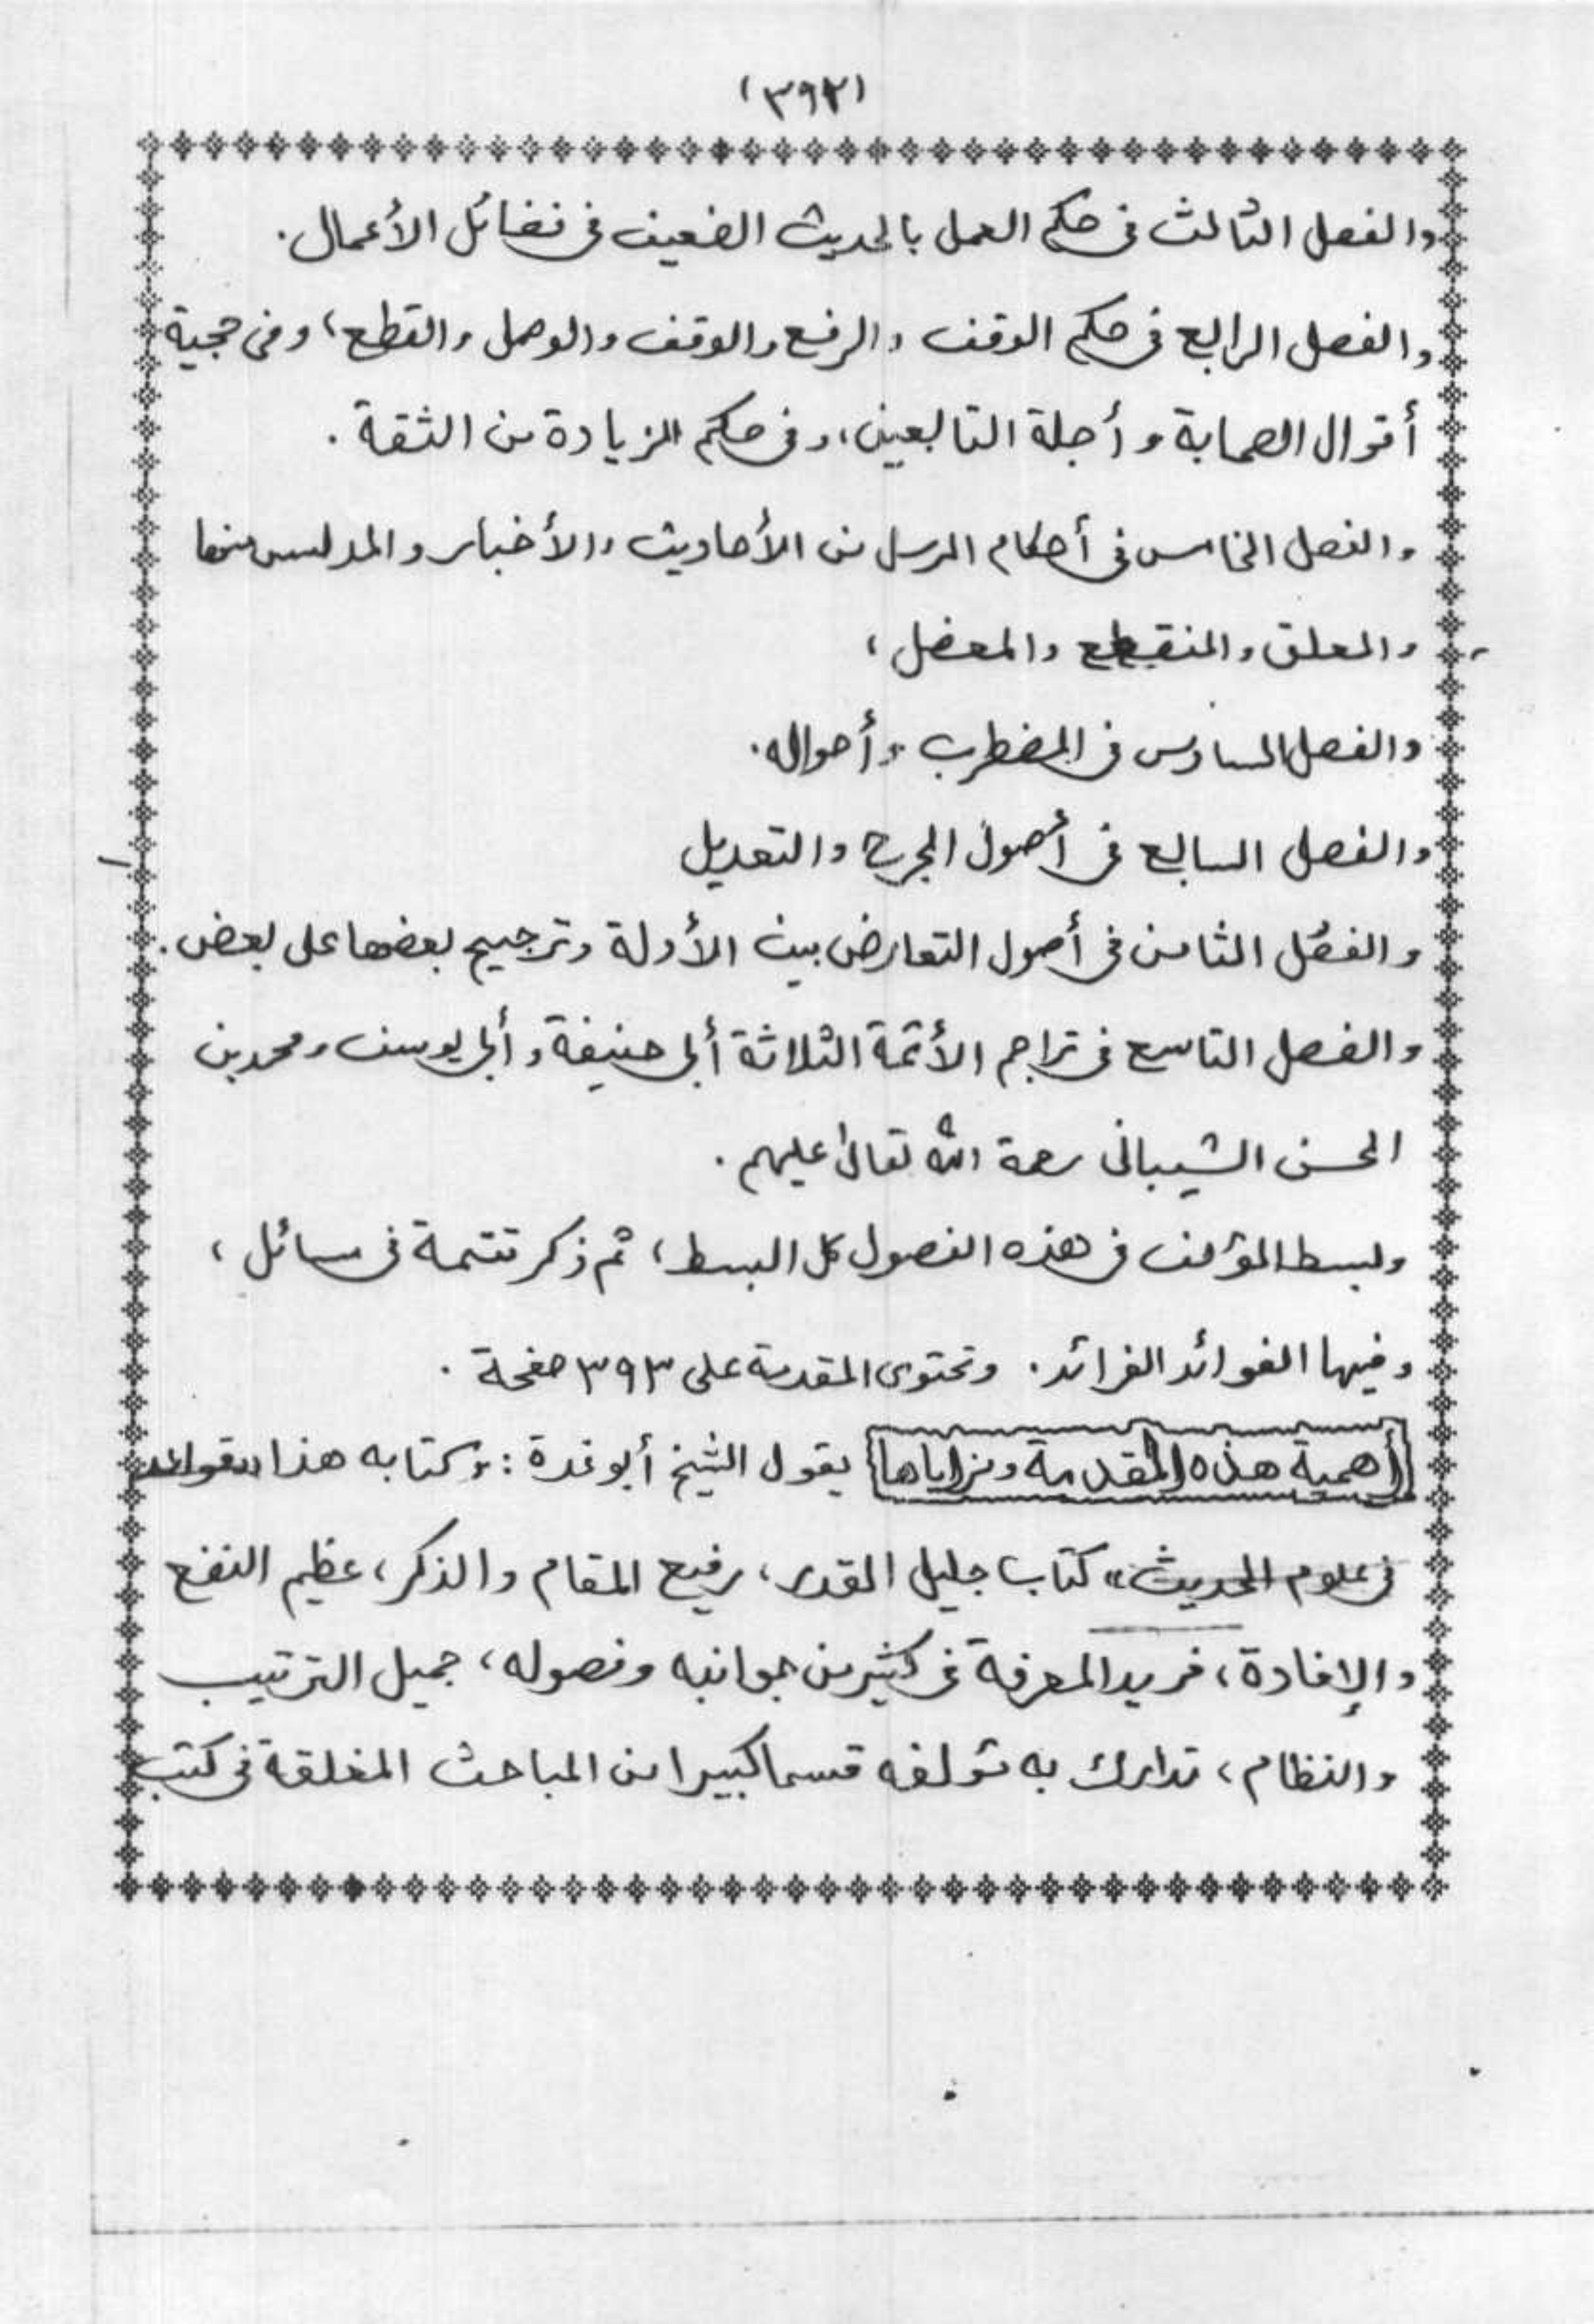 (٣٩٢)
والفصل الثالث فى حكم العمل بالحديث الضعيف فى فضائل الأعمال.
والفصل الرابع فى حكم الوقف والرفع والوقف والوصل والقطع، وفى حجية
أقوال الصحابة وأجلة التابعين، وفى حكم الزيادة من الثقة.
والفصل الخامس فى أحكام المرسل من الأحاديث والأخبار والمدلس منها
والمعلق والمنقطع والمعضل،
والفصل السادس فى المضطرب وأحواله.
والفصل السابع فى أصول الجرح والتعديل
والفصل الثامن فى أصول التعارض بين الأدلة وترجيح بعضها على بعض.
والفصل التاسع فى تراجم الأئمة الثلاثة أبى حنيفة وأبى يوسف ومحمد بن
الحسن الشيبانى رحمة الله تعالى عليهم.
وبسط المؤلف فى هذه الفصول كل البسط، ثم ذكر تتمة فى مسائل،
وفيها الفوائد الفرائد. وتحتوى المقدمة على ٣٩٣ صفحة.
أهمية هذه المقدمة ومزاياها يقول الشيخ أبو غدة: وكتابه هذا "قواعد
فى علوم الحديث" كتاب جليل القدر، رفيع المقام والذكر، عظيم النفع
والإفادة، فريد المعرفة فى كثير من جوانبه وفصوله، جميل الترتيب
والنظام، تدارك به مؤلفه قسما كبيرا من المباحث المغلقة فى كتب